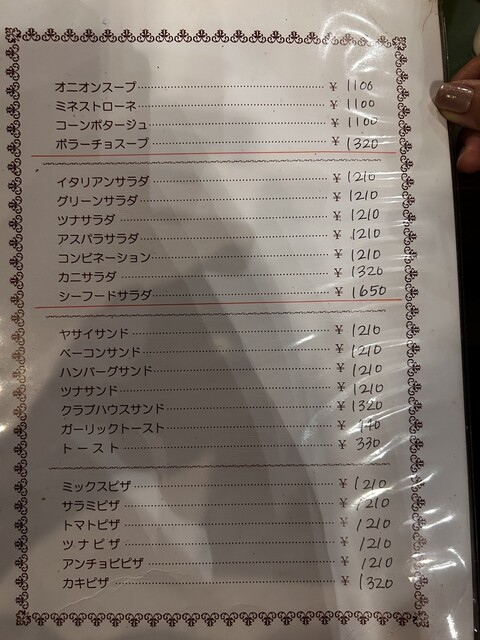 オニオンスープ ¥ 1100
ミネストローネ ¥ 1100
コーンポタージュ ¥ 1100
ボラーチョスープ ¥ 1320
イタリアンサラダ ¥ 1210
グリーンサラダ ¥ 1210
ツナサラダ ¥ 1210
アスパラサラダ ¥ 1210
コンビネーション ¥ 1210
カニサラダ ¥ 1320
シーフードサラダ ¥ 1650
ヤサイサンド ¥ 1210
ベーコンサンド ¥ 1210
ハンバーグサンド ¥ 1210
ツナサンド ¥ 1210
クラブハウスサンド ¥ 1320
ガーリックトースト ¥
トースト ¥ 330
ミックスピザ ¥ 1210
サラミピザ ¥ 1210
トマトピザ ¥ 1210
ツナピザ ¥ 1210
アンチョビピザ ¥ 1210
カキピザ ¥ 1320